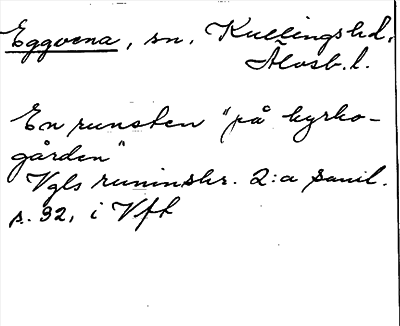 Eggvena, sn, Kullings hd.
Älvsb. l.
En runsten "på kyrko-
gården"
Vgls runinskr. 2:a saml.
s. 92, i Vft